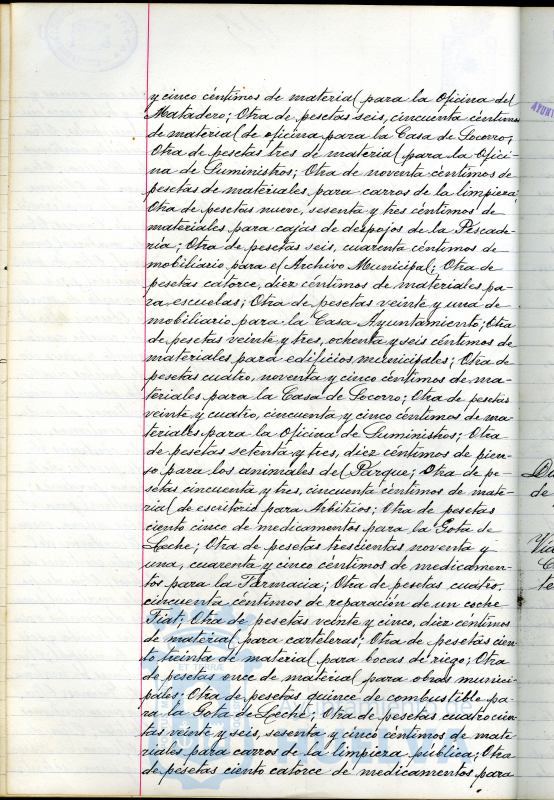 y cinco céntimos de material para la Oficina del
Matadero; Otra de pesetas seis, cincuenta céntimos
de material de oficina para la Casa de Socorro;
Otra de pesetas tres de material para la Ofici-
na de Suministros; Otra de noventa céntimos de
pesetas de materiales para carros de la limpieza;
Otra de pesetas nueve, sesenta y tres céntimos de
materiales para cajas de despojos de la Pescade-
ria; Otra de pesetas seis, cuarenta céntimos de
mobiliario para el Archivo Municipal; Otra de
pesetas catorce, diez céntimos de materiales pa-
ra escuelas; Otra de pesetas veinte y una de
mobiliario para la Casa Ayuntamiento; Otra
de pesetas veinte y tres, ochenta y seis céntimos de
materiales para edificios municipales; Otra de
pesetas cuatro, noventa y cinco céntimos de ma-
teriales para la Casa de Socorro; Otra de pesetas
veinte y cuatro, cincuenta y cinco céntimos de ma-
teriales para la Oficina de Suministros; Otra
de pesetas setenta y tres, diez céntimos de pien-
so para los animales del Parque; Otra de pe-
setas cincuenta y tres, cincuenta céntimos de mate-
rial de escritorio para Arbitrios; Otra de pesetas
ciento cinco de medicamentos para la Gota de
Leche; Otra de pesetas trescientas noventa y
una, cuarenta y cinco céntimos de medicamen-
tos para la Farmacia; Otra de pesetas cuatro,
cincuenta céntimos de reparación de un coche
Fiat; Otra de pesetas veinte y cinco, diez céntimos
de material para carteleras; Otra de pesetas cien-
to treinta de material para bocas de riego; Otra
de pesetas once de material para obras munici-
pales; Otra de pesetas quince de combustible pa-
ra la Gota de Leche; Otra de pesetas cuatrocien-
tas veinte y seis, sesenta y cinco céntimos de mate-
riales para carros de la limpieza pública; Otra
de pesetas ciento catorce de medicamentos para
ET TERRAE
Ayuntamiento de
HUELVA